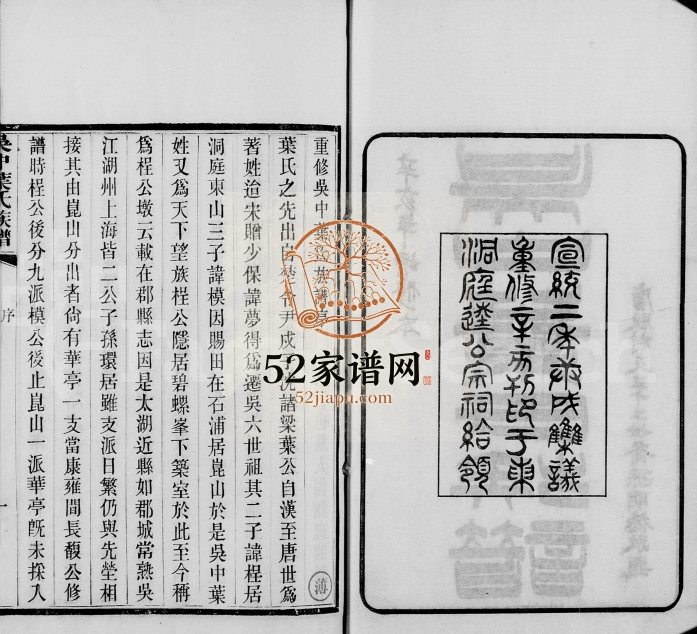 宣統二年庚戌集議
重修辛亥刊印于東
洞庭逵公宗祠給領
重修吳中葉氏族譜序
葉氏之先出自楚令尹成子沈諸梁葉公自漢至唐世爲
著姓迨宋贈少保諱夢得爲遷吳六世祖其二子諱桯居
洞庭東山三子諱模因賜田在石浦居崑山於是吳中葉
姓又爲天下望族桯公隱居碧螺峯下築室於此至今稱
爲桯公墩云載在郡縣志因是太湖近縣如郡城常熟吳
江湖州上海皆二公子孫環居雖支派日繁仍與先塋相
接其由崑山分出者尙有華亭一支當康雍間長馥公修
譜時桯公後分九派模公後止崑山一派華亭旣未採入
吳中葉氏族譜
序
一
52家谱网
52jiapu.com